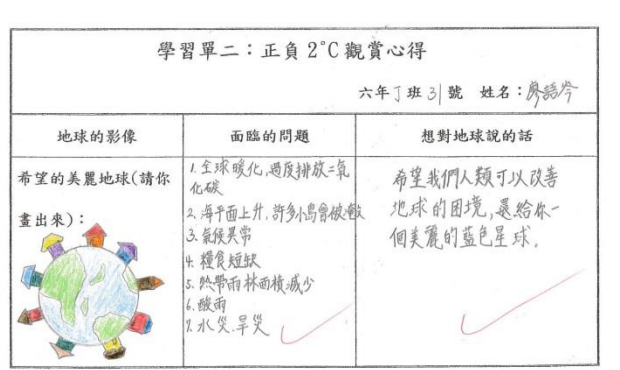 學習單二：正負 2℃觀賞心得
六年丁班 31 號 姓名：廖語岑
地球的影像
面臨的問題
想對地球說的話
希望的美麗地球(請你
畫出來)：
1. 全球暖化，過度排放二氧
化碳
2. 海平面上升，許多小島會被淹
3. 氣候異常
4. 糧食短缺
5. 熱帶雨林面積減少
6. 酸雨
7. 水災.旱災
希望我們人類可以改善
地球的困境，還給你一
個美麗的藍色星球。